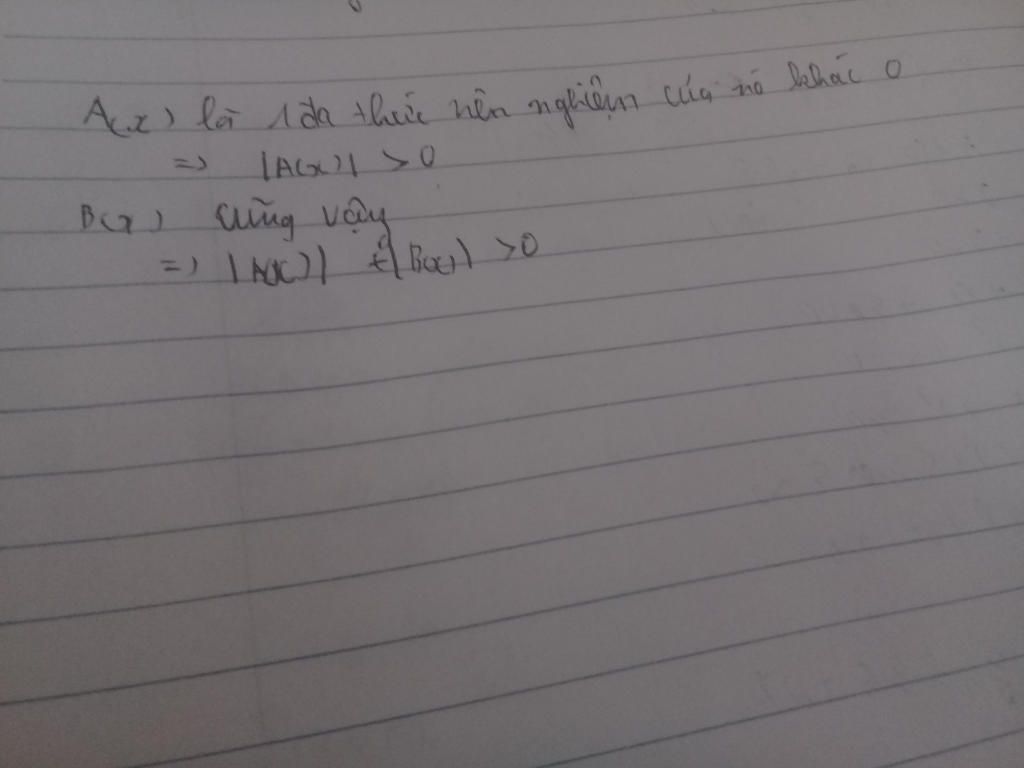 A(x) là 1 đa thức nên nghiệm của nó khác 0
=> |A(x)| > 0
B(x) cũng vậy
=> |A(x)| + |B(x)| > 0